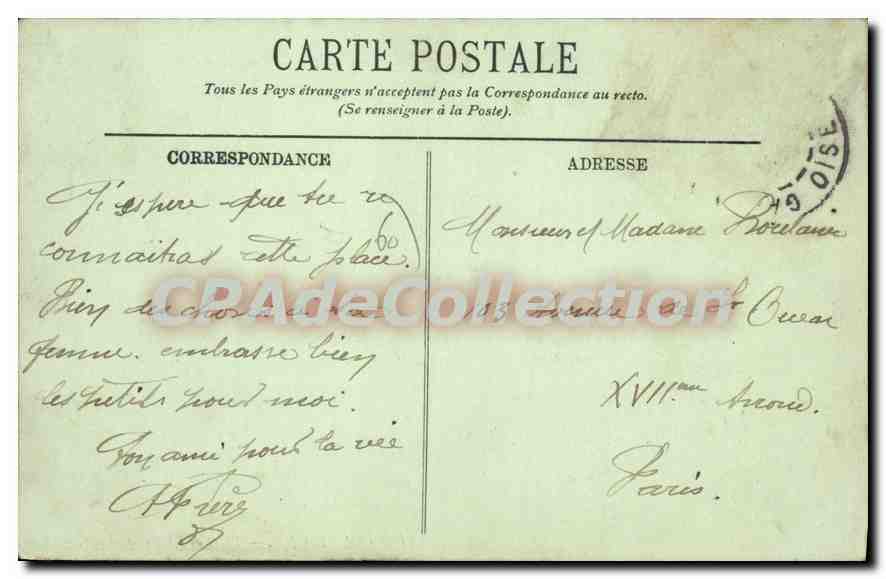 CARTE POSTALE
Tous les Pays étrangers n'acceptent pas la Correspondance au recto.
(Se renseigner à la Poste).
CORRESPONDANCE
J'espere que tu re
connaitras cette place.
60
Bien des choses a ta
femme. embrasse bien
les petits pour moi.
Ton ami pour la vie
ADRESSE
OISE
Monsieur et Madame
103 Avenue de St Ouen
XVIIeme Arrond.
Paris.
CPAdeCollection.com